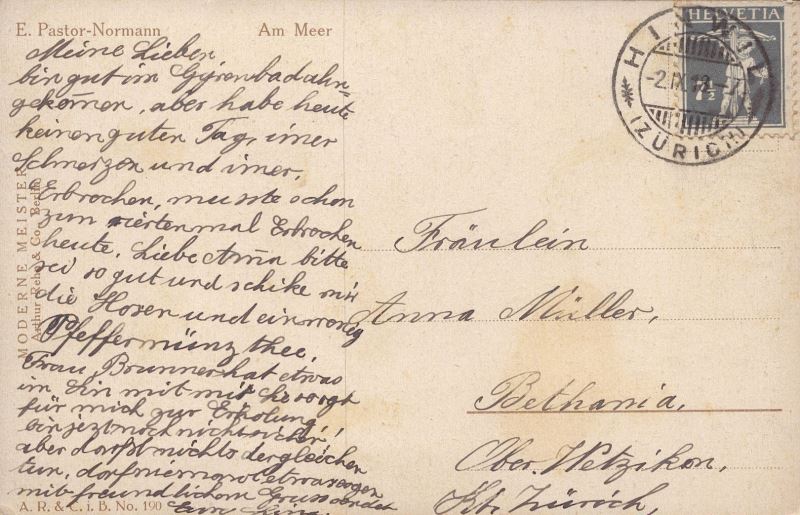 E. Pastor-Normann
Am Meer
Meine Lieben
bin gut im Gyrenbad ahn-
gekomen, aber habe heute
keinen guten Tag, imer
Schmerzen und imer,
Erbrochen, musste schon
zum vierten mal Erbrochen
heute. Liebe Anna bitte
sei so gut und schike mir
die Hosen und ein wenig
Pfeffermünz thee,
Frau, Brunner hat etwas
im Sin mit mir
für mich zur Erholung!
jezt noch nicht sicher!
aber darfst nichts dergleichen
tun, darf niemand etwas sagen
mit freundlichem Gruss sendet
Eure
MODERNE MEISTER
Arthur Rehn & Co., Berlin
A. R. & C. i. B. No. 190
HELVETIA
7½
HINWIL
-2.IX.18.-7
(ZÜRICH)
Fräulein
Anna Müller,
Bethania,
Ober. Wetzikon,
Kt. Zürich,